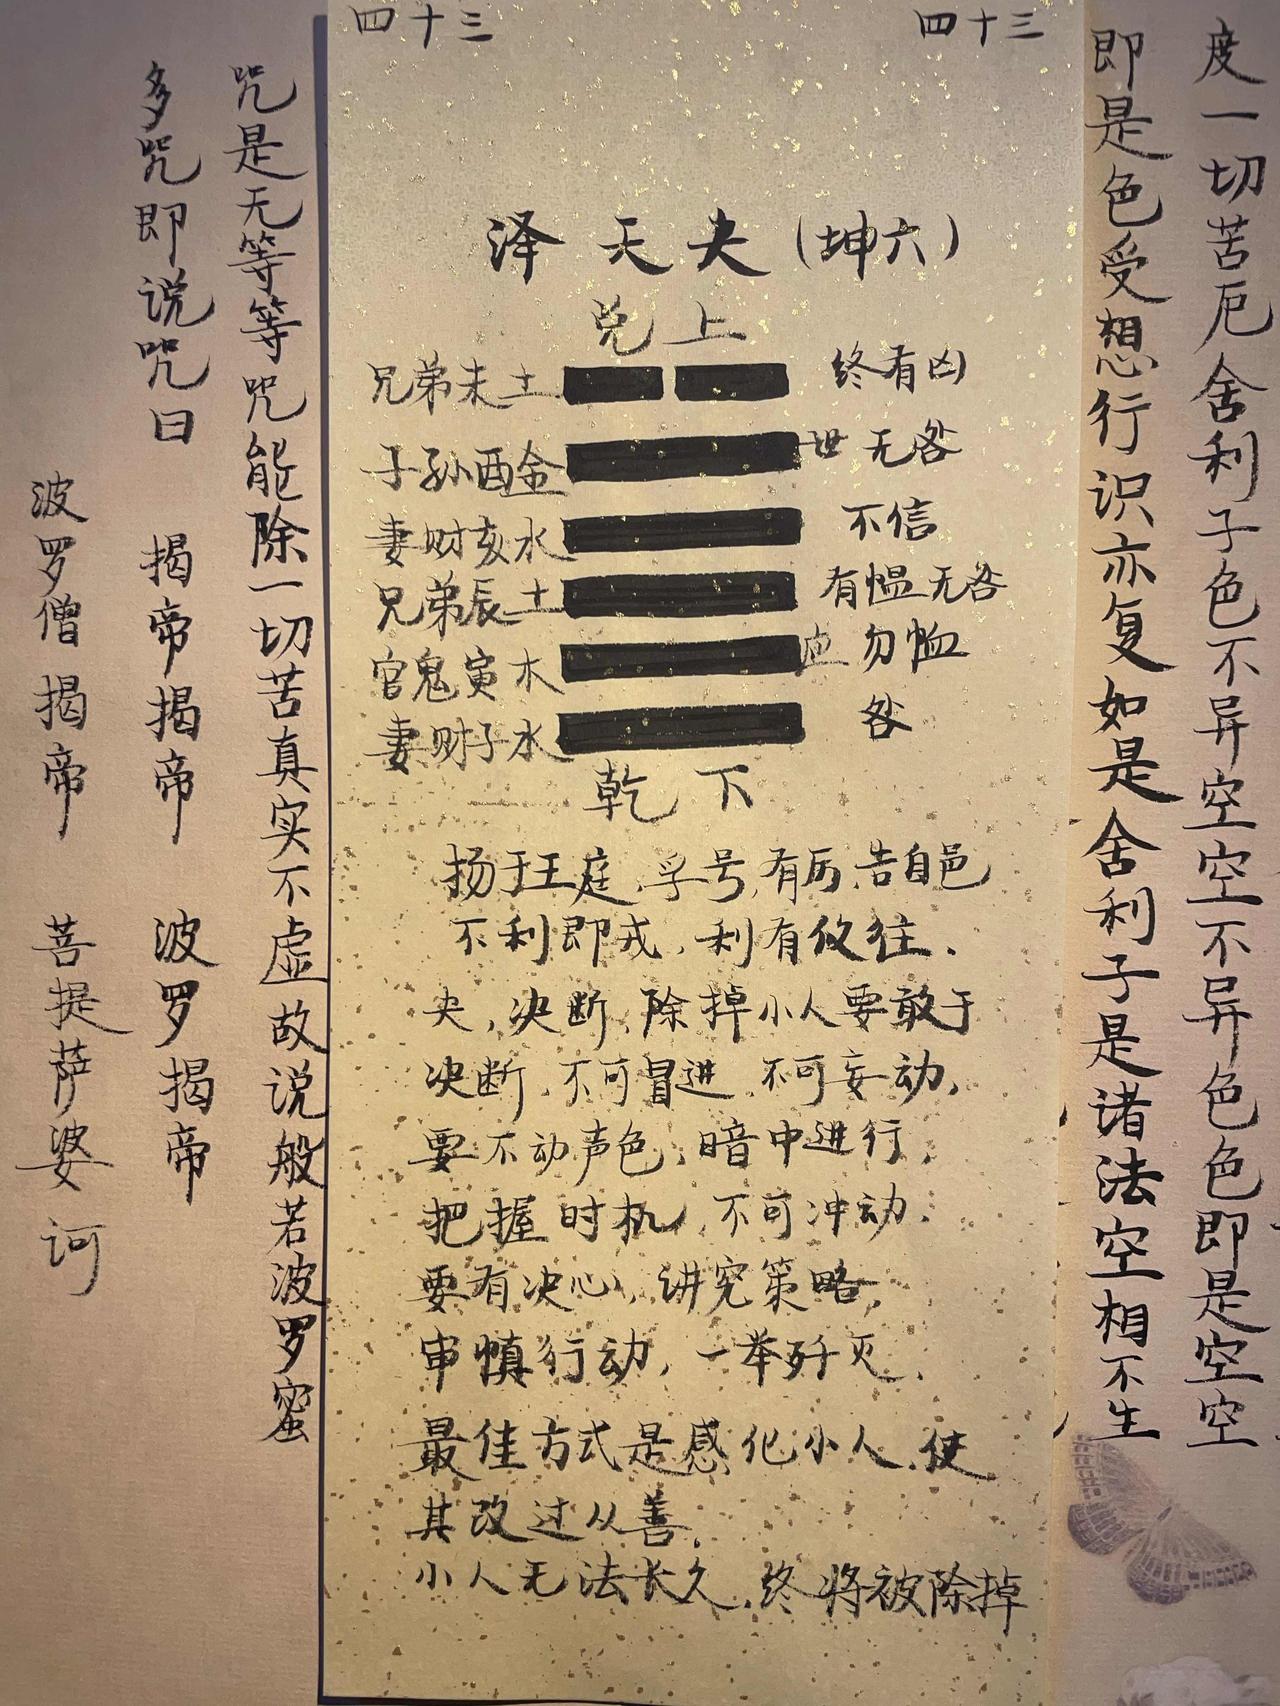 度一切苦厄舍利子色不异空空不异色色即是空空
即是色受想行识亦复如是舍利子是诸法空相不生
四十三 四十三
泽天夬（坤六）
兑上
兄弟未土 终有凶
子孙酉金 世 无咎
妻财亥水 不信
兄弟辰土 有愠无咎
官鬼寅木 应 勿恤
妻财子水 咎
乾下
扬于王庭,孚号,有厉,告自邑
不利即戎,利有攸往.
夬,决断,除掉小人要敢于
决断,不可冒进,不可妄动,
要不动声色,暗中进行,
把握时机,不可冲动.
要有决心,讲究策略,
审慎行动,一举歼灭.
最佳方式是感化小人,使
其改过从善.
小人无法长久,终将被除掉
咒是无等等咒能除一切苦真实不虚故说般若波罗蜜
多咒即说咒曰 揭帝揭帝 波罗揭帝
波罗僧揭帝 菩提萨婆诃